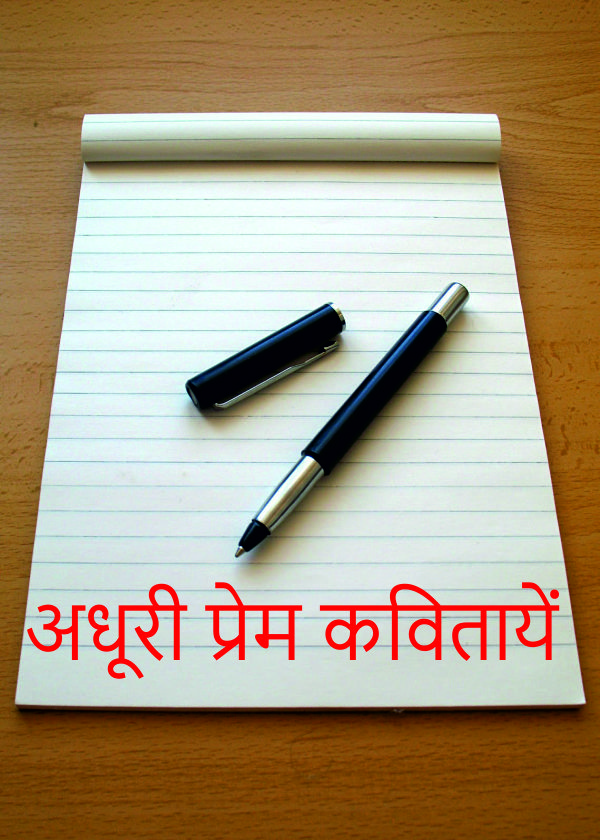 अधूरी प्रेम कवितायें